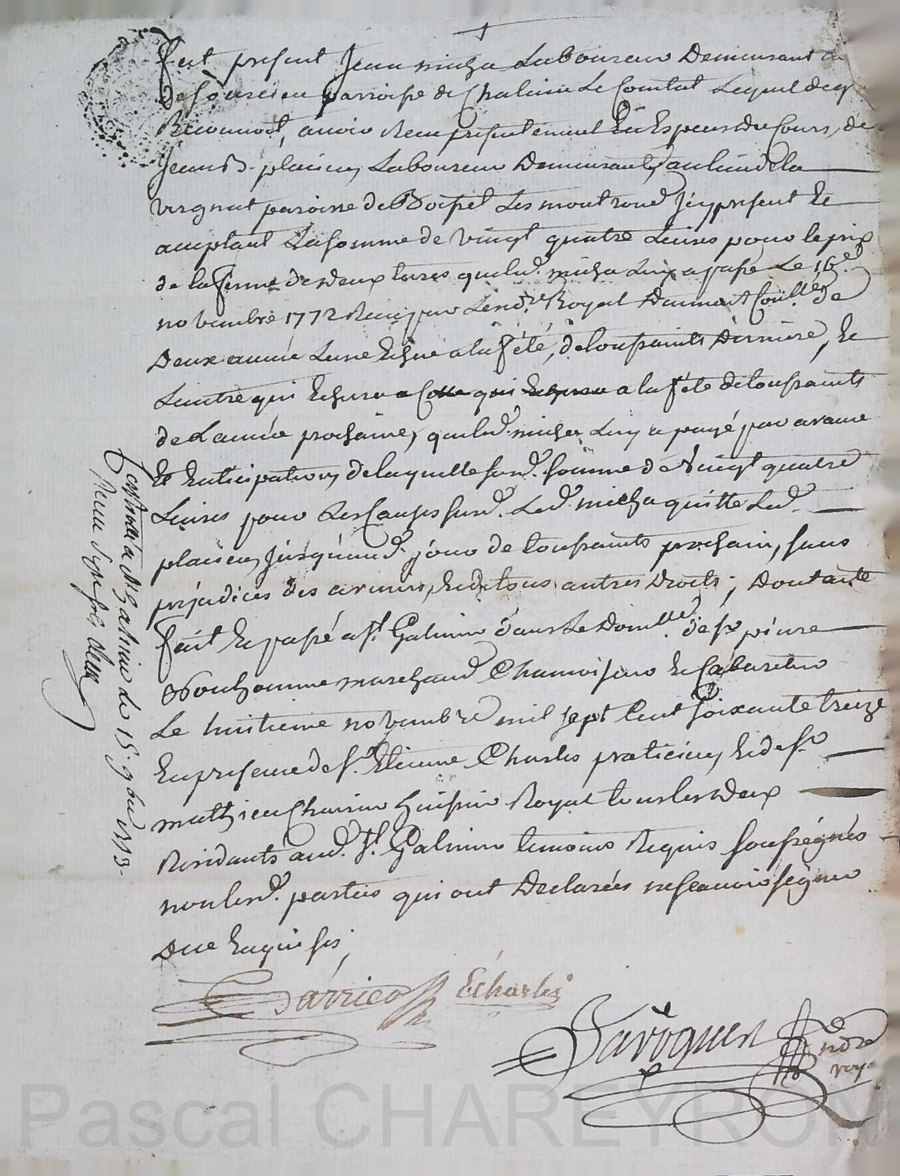 fut present Jean micha Laboureur Demeurant au
parroisse de Chalain Le Comtal Lequel de gré
Reconnoit avoir Reçu presentement En Especes du Cours, de
Jean B. plaicu Laboureur Demeurant au lieu de la
virgnat paroisse de Boisset Les montrond Jcy present Et
acceptant La somme de vingt quatre Livres pour le prix
de la ferme de deux terres que led. micha Luy a passé Le 16e
novembre 1772 Reçu par Lend. Re Royal Daumont Conllé de
Deux année Lune Echue a la fété de toussaints Derniere, Et
Lautre qui Echera a la fété de toussaints
de Lannée prochaine, que led. micha Luy a payé par avance
Et Enticipation, de laquelle surd. somme de Vingt quatre
Livres pour Les Causes surd. Led. micha quitte Led.
plaicu jusquaud. jour de toussaints prochain, sans
prejudices des Et de tous autres Droits; Dont acte
fait Et passé a St. Galmier dans Le Domlle de sr. pierre
Bonhomme marchand Chamoiseur Et Cabaretier
Le huitieme novembre mil sept Cent soixante treize
En presence de sr. Etienne Charles praticien, Et de sr.
mathieu huissier Royal tous les deux
Residants aud. St. Galmier temoins Requis soussignés
non lesd. parties qui ont Declarées ne scavoir signer
De ce Enquises,
Darrico ECharles
Savoquen ndre roy
Controllé a St. Galmier Le 15 9bre 1773
Reçu
Pascal CHAREYRON